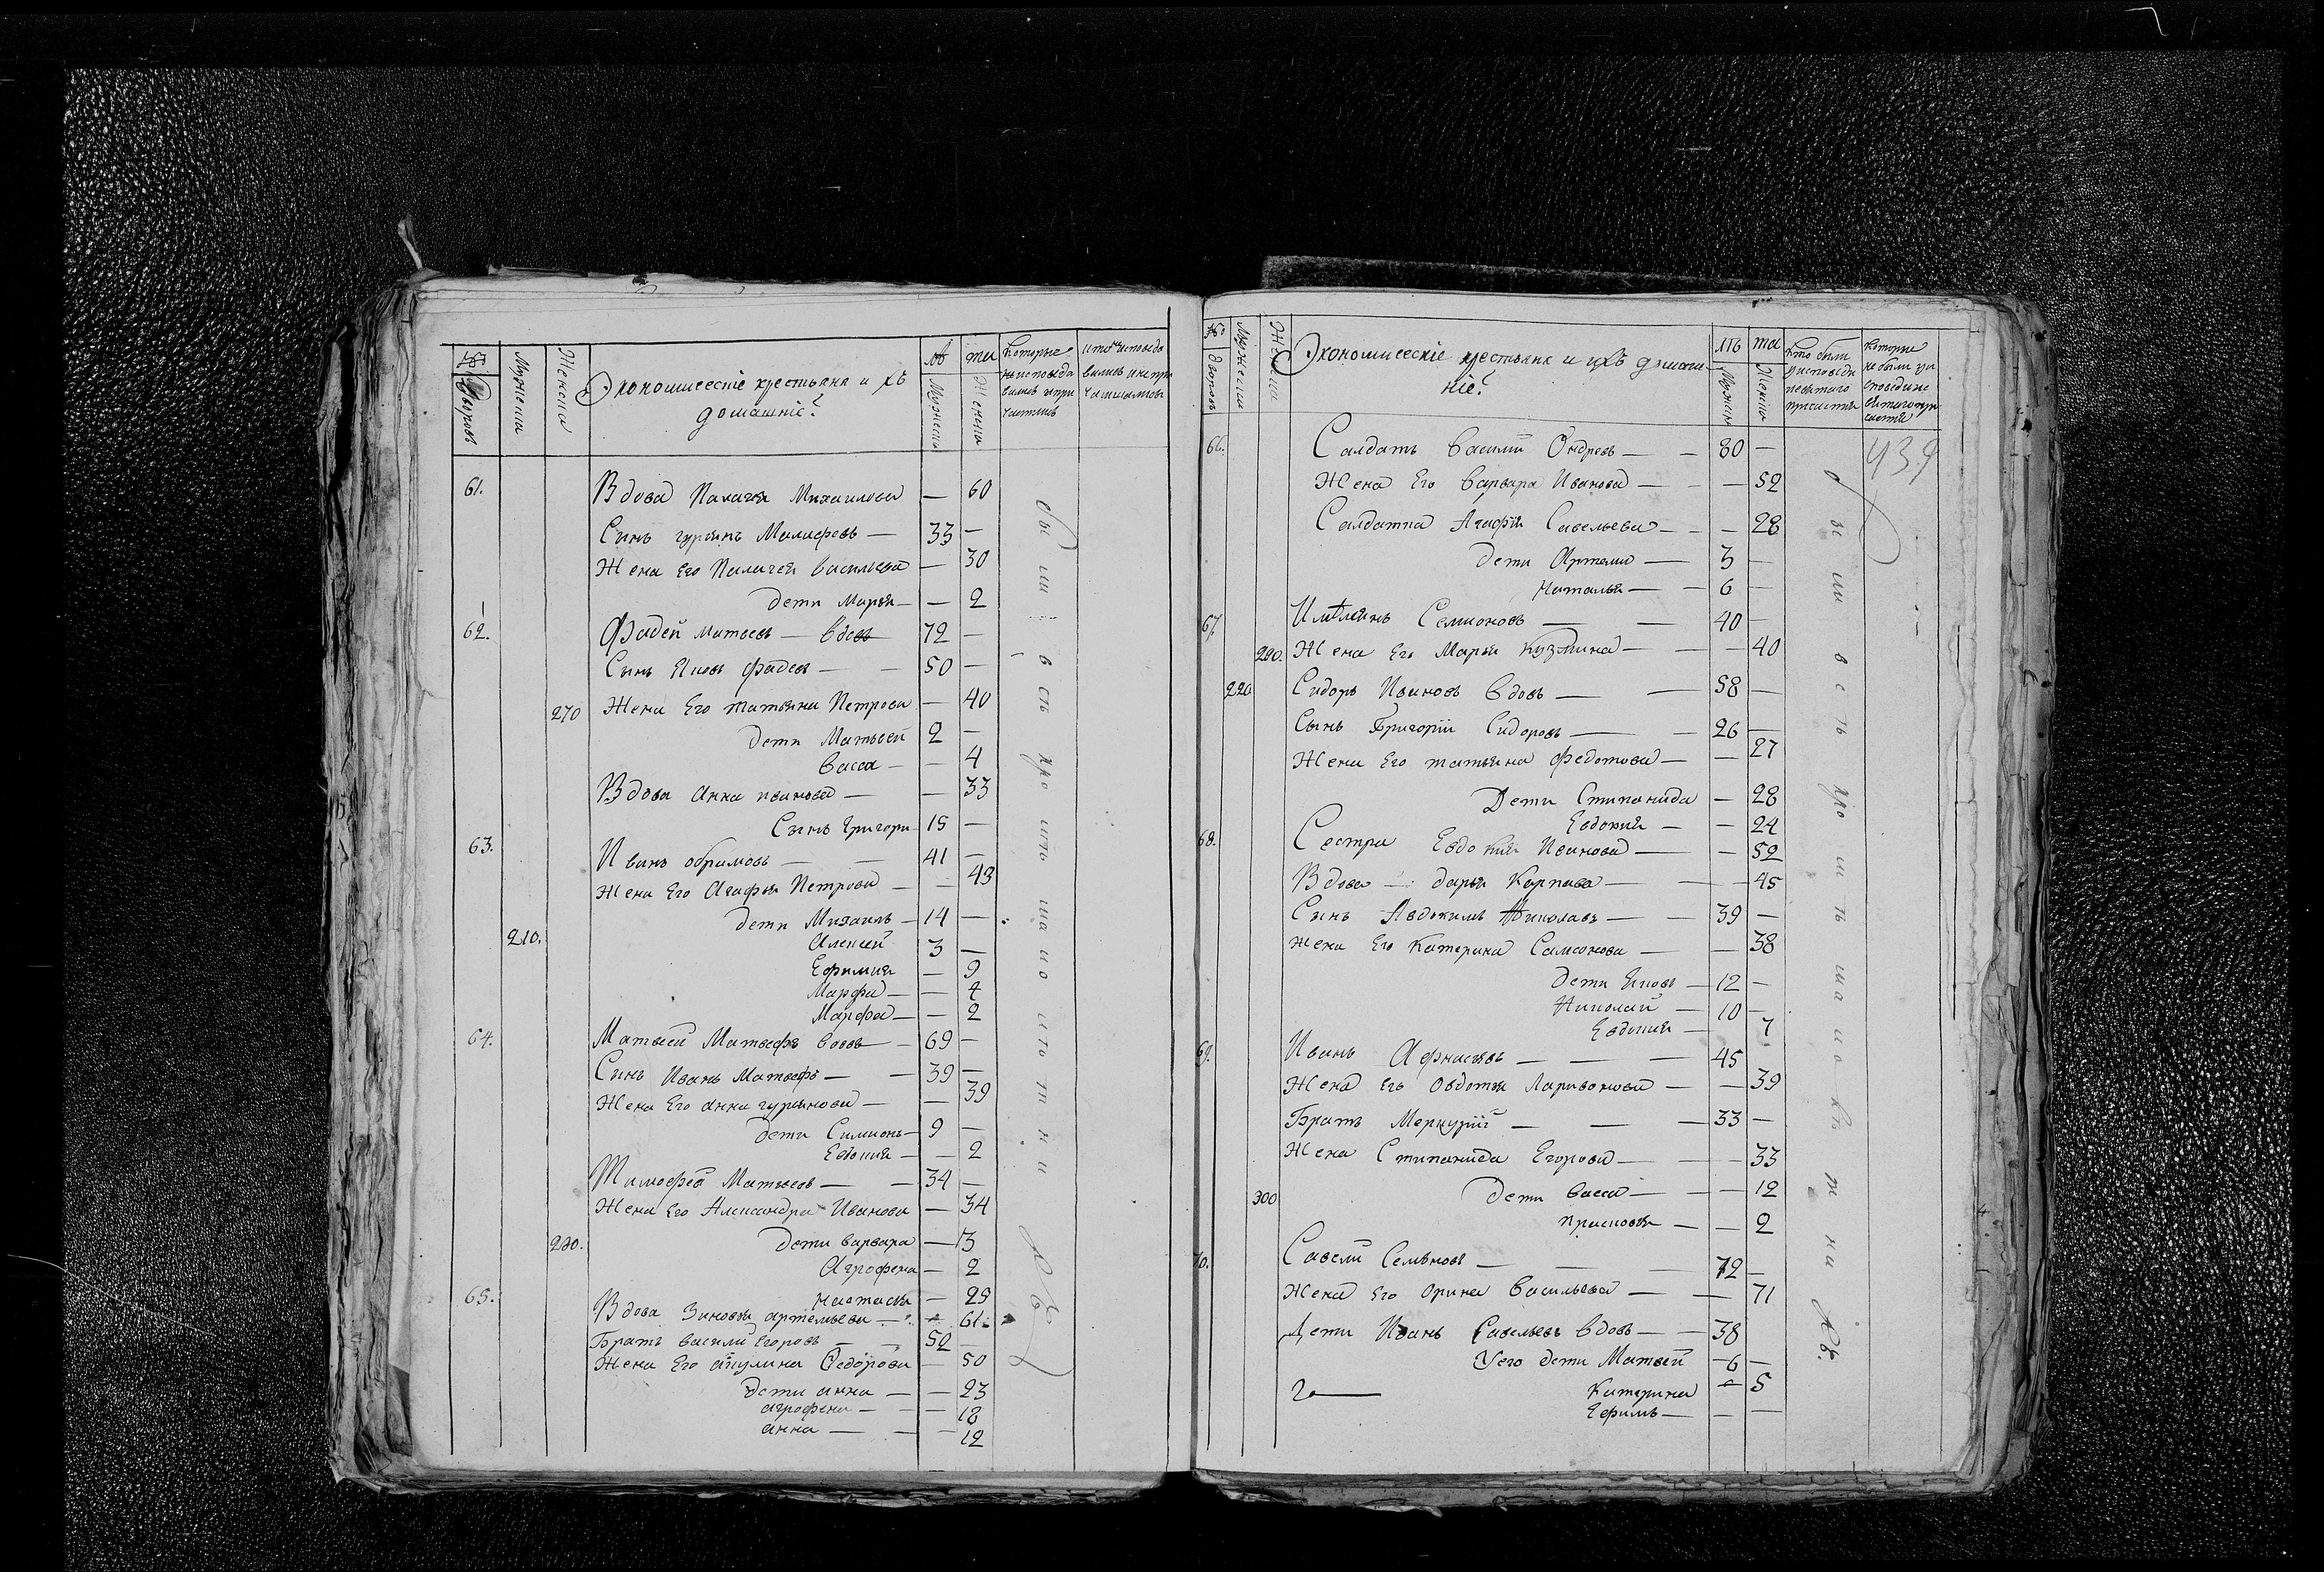 № дворовъ Мужеска Женска Экономическіе крестьяна и ихъ лѣ та Которые
домашніе Мужеска Женска
61. Вдова Палагея Михаилова — 60
Сынъ гурьянъ Малафеевъ — 33 —
Жена Его Палагея Васильева — 30
дети Марья — — 2
62. Фадей Матвеев — вдовъ 72 —
Сынъ Яковъ Фадеев — — 50 —
270 Жена Его татьяна Петрова — 40
дети Матьвей 2 —
Васса — — 4
Вдова Анна иванова — — 33
Сынъ Григори 15 —
63. Иванъ обрамовъ — — 41 —
Жена Его Агафья Петрова — — 43
дети Михаилъ — 14 —
210. Алексей 3 —
Ефимия — 9
Марфа — — 4
Марфа — — 2
64. Матвей Матвеефъ вдовъ — 69 —
Сынъ Иванъ Матвеефъ — — 39 —
Жена Его анна гурьянова — — 39
дети Симионъ — 9 —
Евдокия — — 2
Тимофей Матвеевъ — — 34 —
Жена Его Александра Иванова — 34
280. дети варвара — 3
Агрофена — 2
Настасья — 25
65. Вдова Зиновья артемьева — 61
Братъ василий Егоровъ — — 52 —
Жена Его акулина Федорова — 50
дети анна — — 23
агрофена — — 18
анна — — — 12
№ дворовъ Мужеска Женска Экономическіе крестьяна и ихъ домаш лѣ та кто были Которые
ніе Мужеска Женска
439
66. Салдатъ василий Ондревъ — — 80 —
Жена Его варвара Иванова — — — 52
Салдатка Агафья Савельева — — 28
дети Артеми — 3 —
Наталья — — 6 —
67. Семионовъ — — 40 —
290. Жена Его Марья Кузмина — — — 40
220 Сидоръ Ивановъ вдовъ — — 58 —
Сынъ Григорий Сидоровъ — — 26 —
Жена Его татьяна Федотова — — 27
Дети Стипанида — 28
Евдокия — — 24
68. Сестра Евдокия Иванова — — 52
Вдова — дарья Карпава — — — 45
Сынъ Авдокимъ Николавъ — — 39 —
жена Его Катерина Самсонова — — 38
дети Яковъ — 12 —
Николай — 10 —
Евдокия — 7
69. Иванъ — — — 45
Жена Его Овдотья Ларивонова — — 39
Братъ Меркурий — — — 33 —
Жена Стипанида Егорова — — — 33
300 дети васса — — — 12
прасковья — — 2
70. Савели Семеновъ — — — 72 —
Жена Его Орина Васильева — — — 71
Дети Иванъ Савельевъ вдовъ — — 38
Уего дети Матвей — 6 —
Катерина — 5
Ефимъ — — —